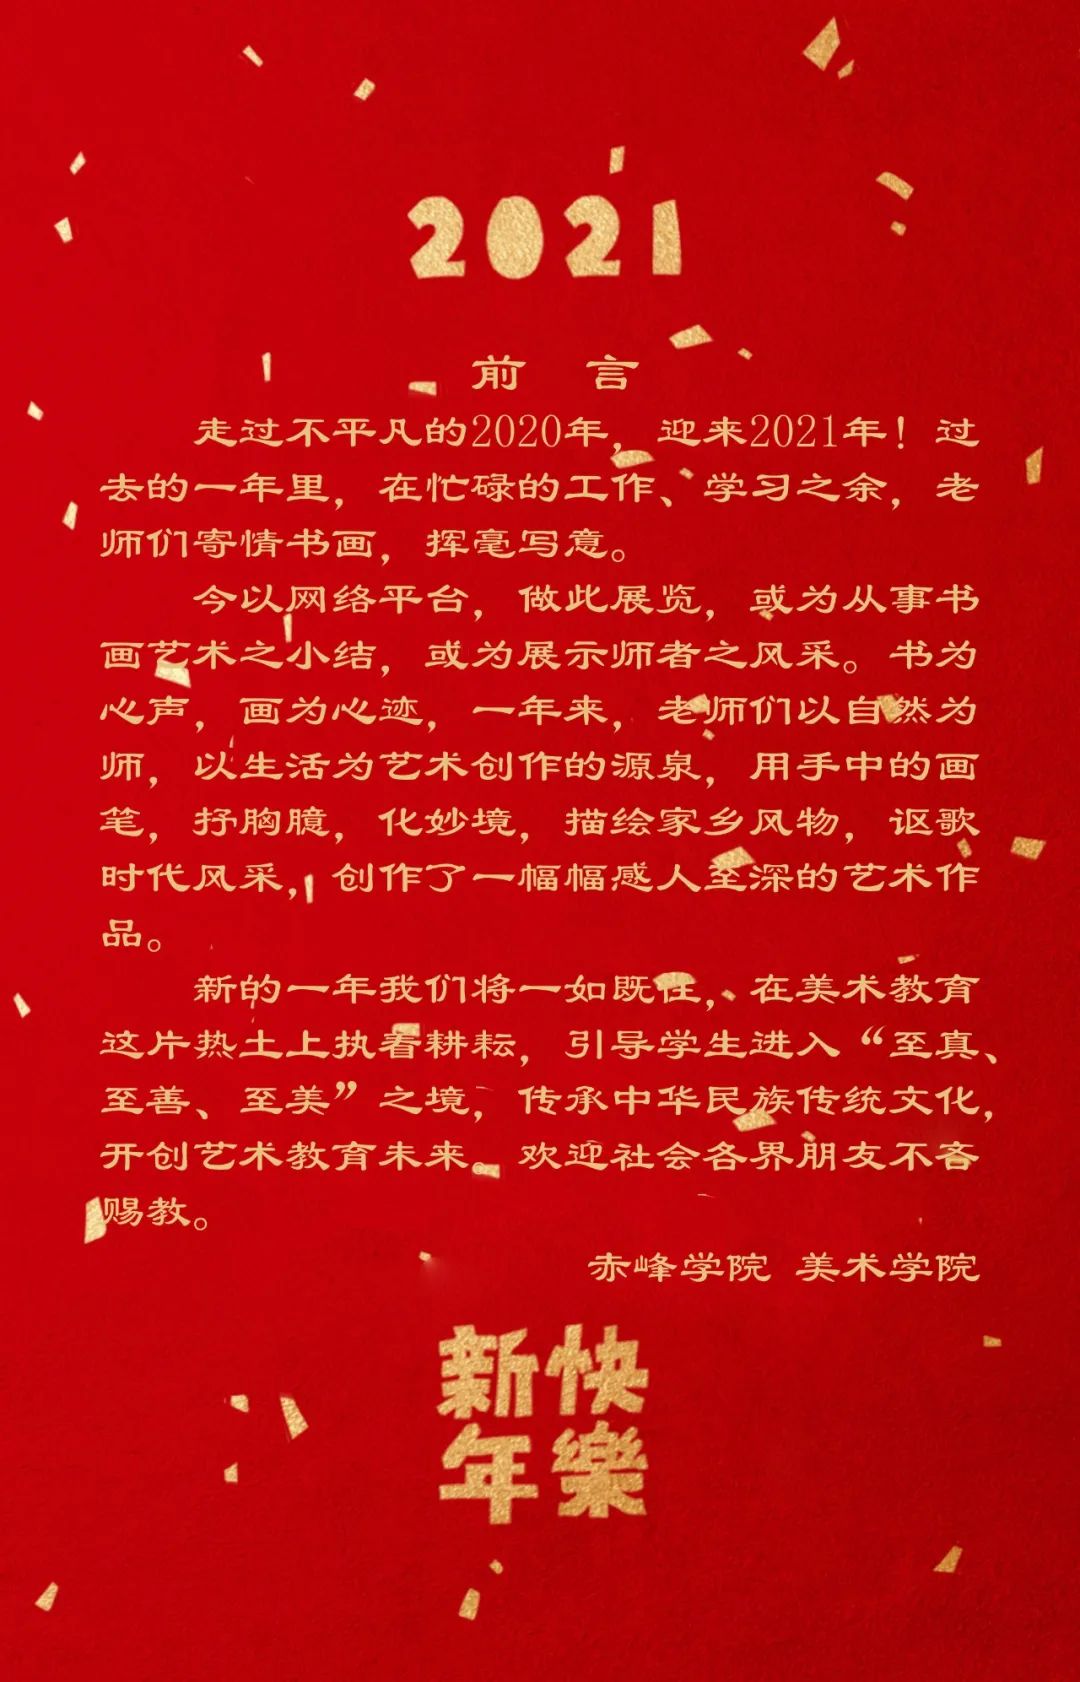 2021
前 言
走过不平凡的2020年，迎来2021年！过
去的一年里，在忙碌的工作、学习之余，老
师们寄情书画，挥毫写意。
今以网络平台，做此展览，或为从事书
画艺术之小结，或为展示师者之风采。书为
心声，画为心迹，一年来，老师们以自然为
师，以生活为艺术创作的源泉，用手中的画
笔，抒胸臆，化妙境，描绘家乡风物，讴歌
时代风采，创作了一幅幅感人至深的艺术作
品。
新的一年我们将一如既往，在美术教育
这片热土上执着耕耘，引导学生进入“至真、
至善、至美”之境，传承中华民族传统文化，
开创艺术教育未来。欢迎社会各界朋友不吝
赐教。
赤峰学院 美术学院
新快
年樂